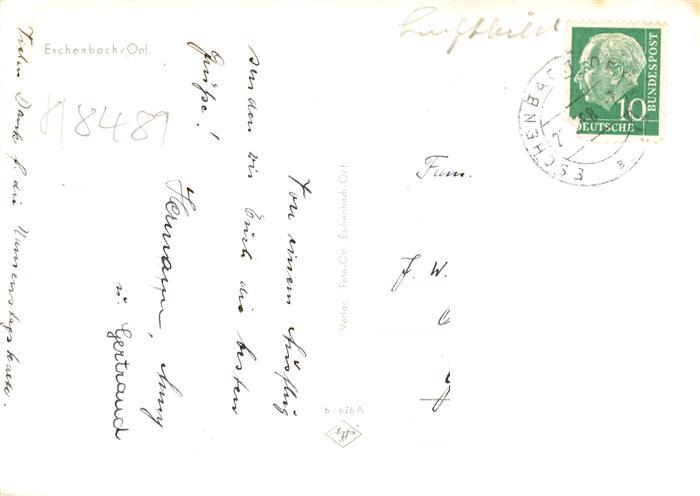 Eschenbach/Opf.
8/8489
Luftbild
Von einem Ausflug
senden wir Euch die besten
Grüße!
Hermann, Anny
u. Gertraud
Vielen Dank f. die Namenstagskarte.
Verlag Foto-Ott, Eschenbach-Opf.
6/676 A
Fam.
J. W.
DEUTSCHE
BUNDESPOST
10
ESCHENBACH